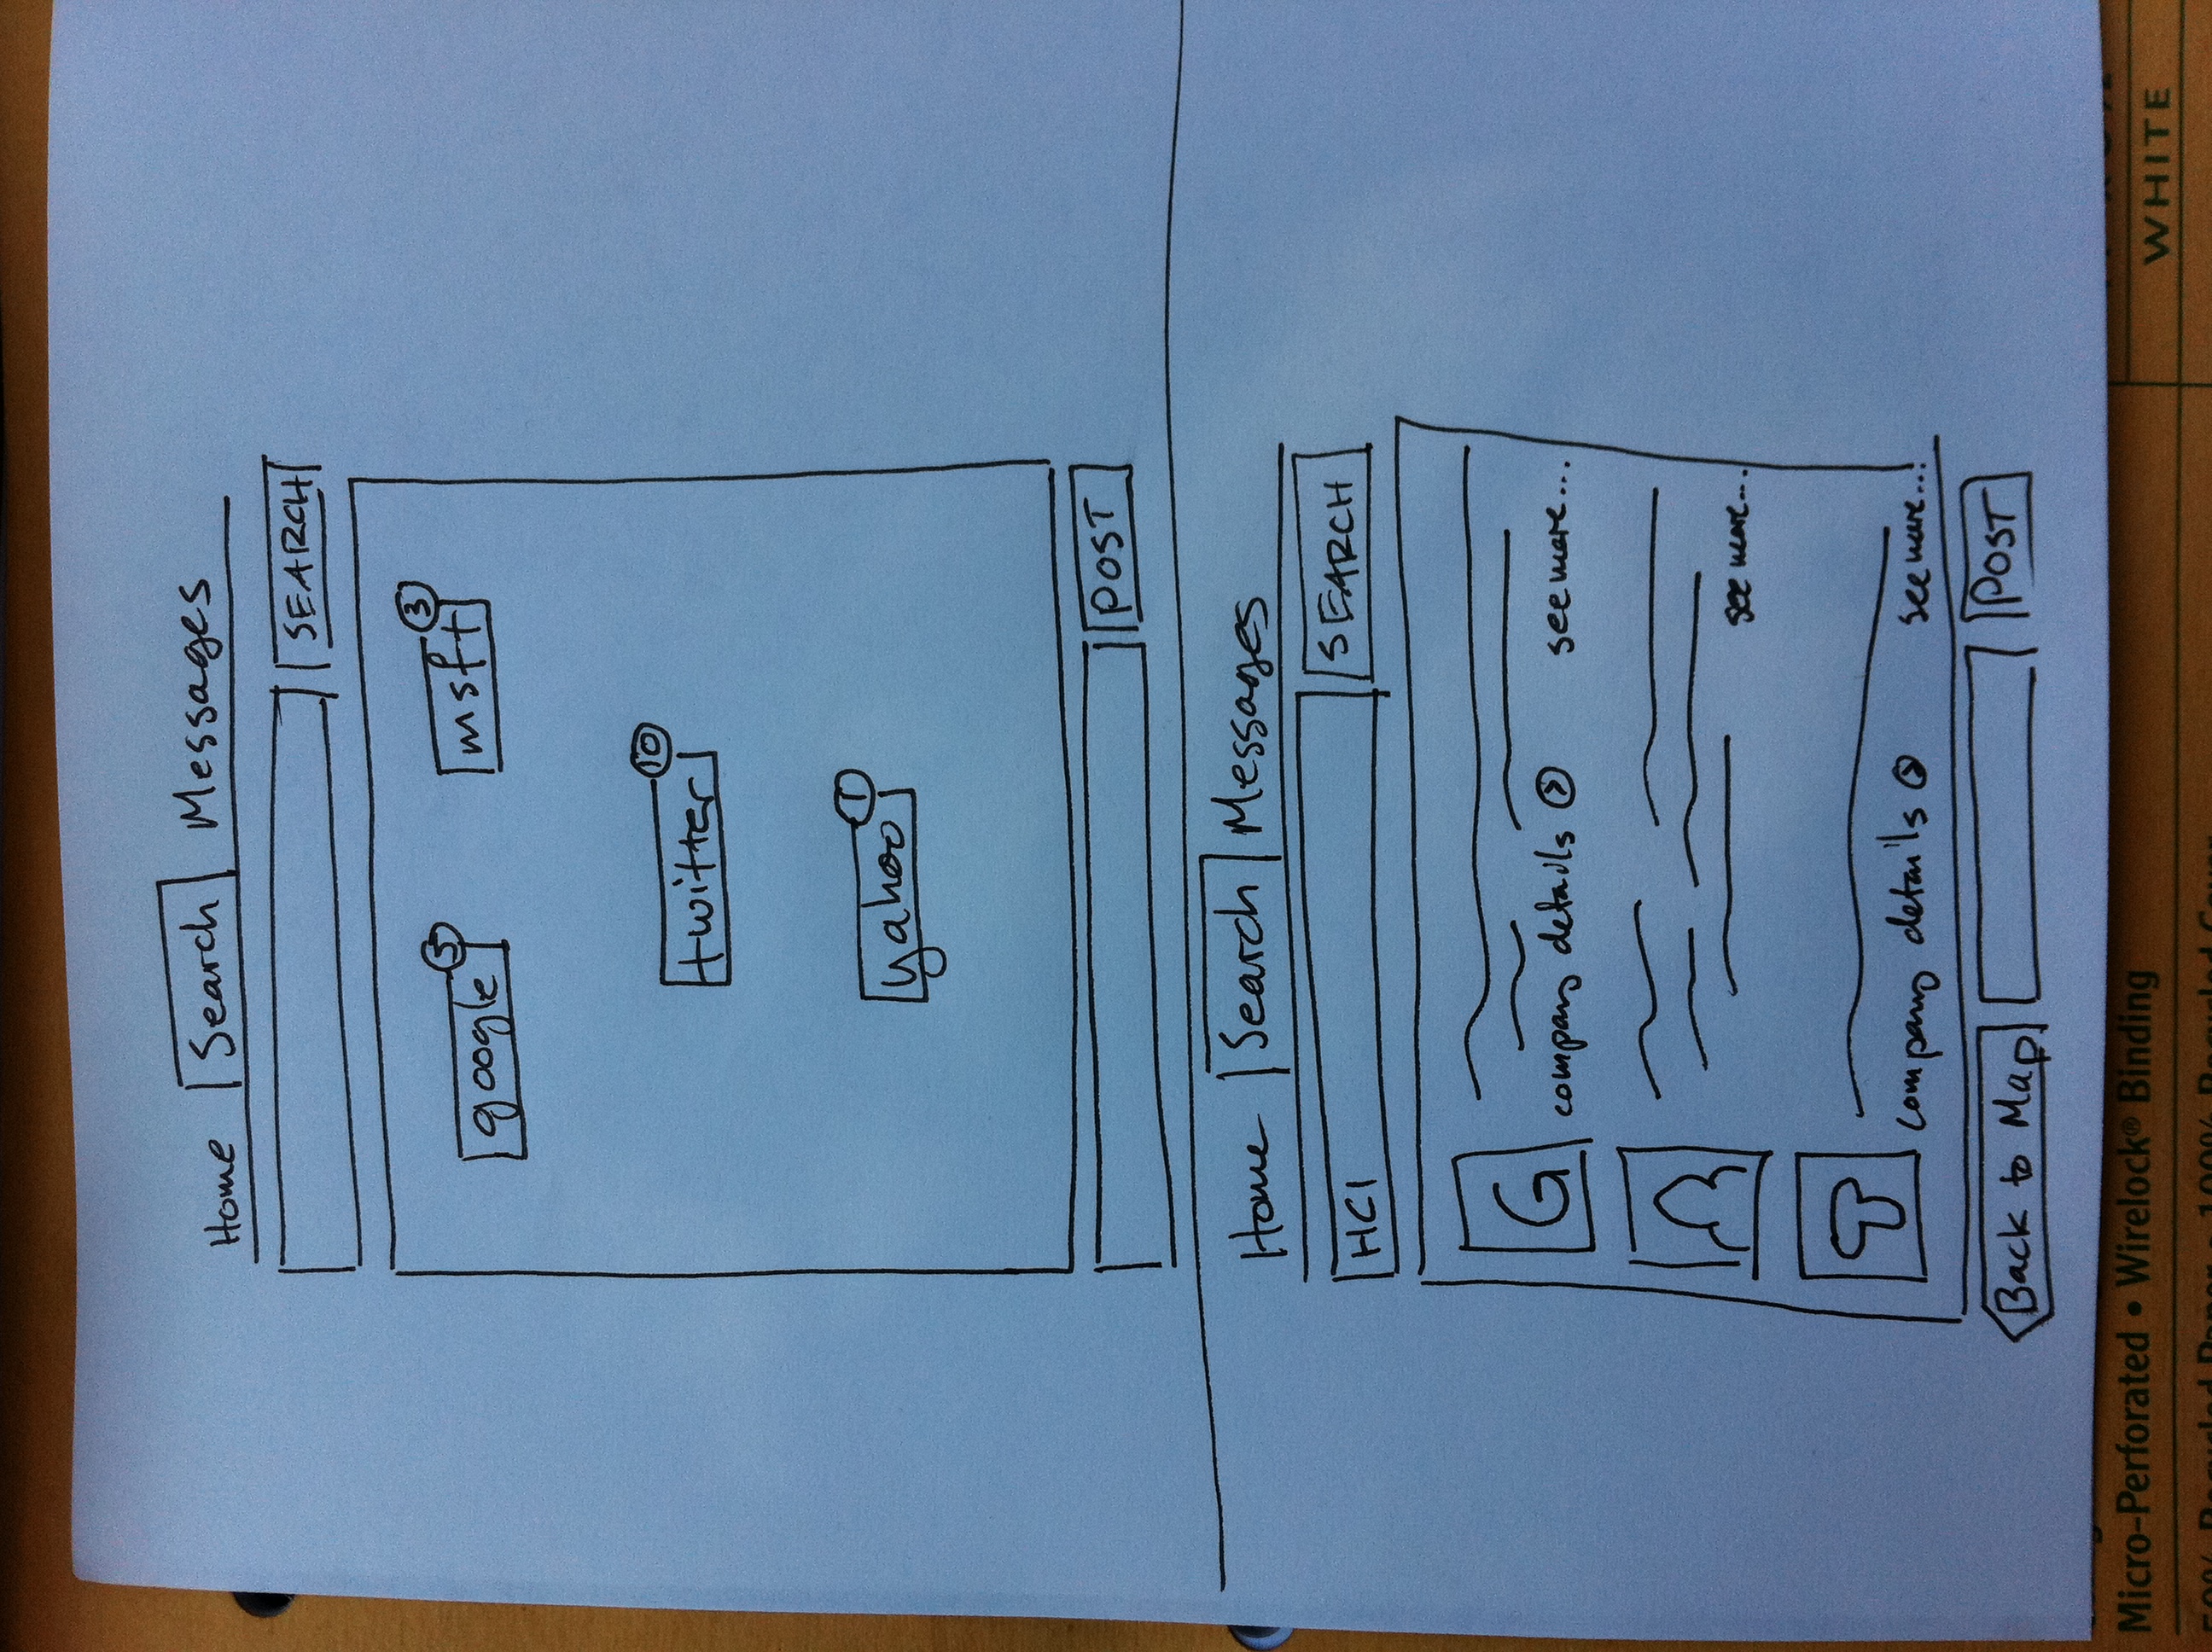 Home Search Messages
SEARCH
5 3
google msft
10
twitter
1
yahoo
POST
Home Search Messages
HCI SEARCH
G
company details > see more...
see more...
T
company details > see more...
Back to Map POST
Micro-Perforated • Wirelock® Binding
WHITE
50% Recycled Paper • 100% Recycled Cover